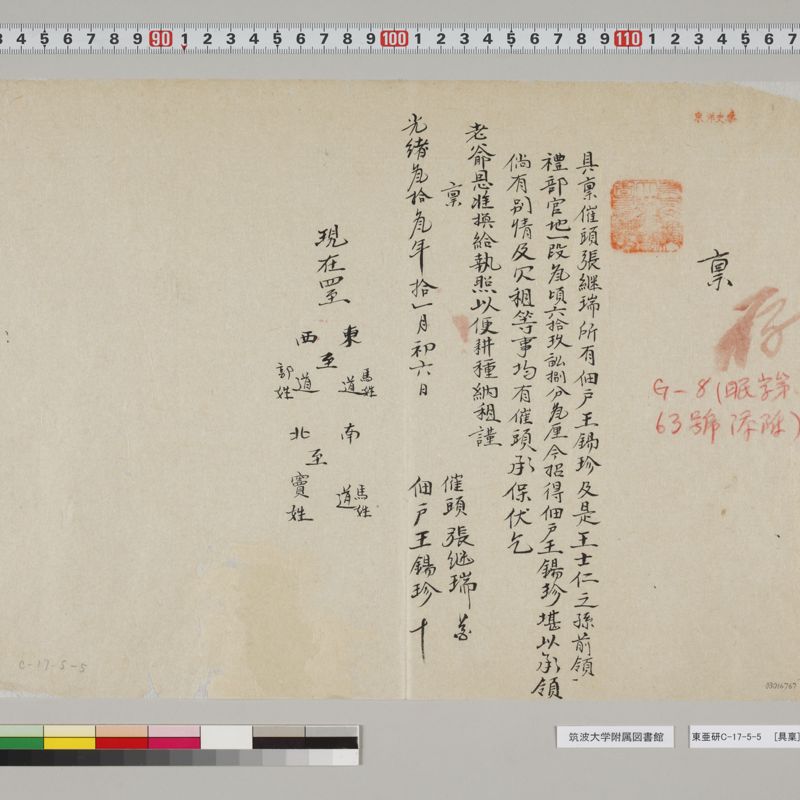 稟
具稟催頭張継瑞所有佃戶王錫珍及是王士仁之孫前領
禮部官地一段為頃六拾玖畝捌分為厘今招得佃戶王錫珍堪以承領
倘有別情及欠租等事均有催頭承保伏乞
老爺恩准換給執照以便耕種納租謹
稟
催頭張继瑞
光緒叁拾叁年拾一月初六日
佃戶王錫珍十
現在四至
東至馬姓道
西至郭姓道
南至馬姓道
北至竇姓
G-8(眠字第
63號添附)
C-17-5-5
03016767
筑波大学附属図書館
東亜研C-17-5-5 [具稟]
3 4 5 6 7 8 9 90 1 2 3 4 5 6 7 8 9 100 1 2 3 4 5 6 7 8 9 110 1 2 3 4 5 6 7